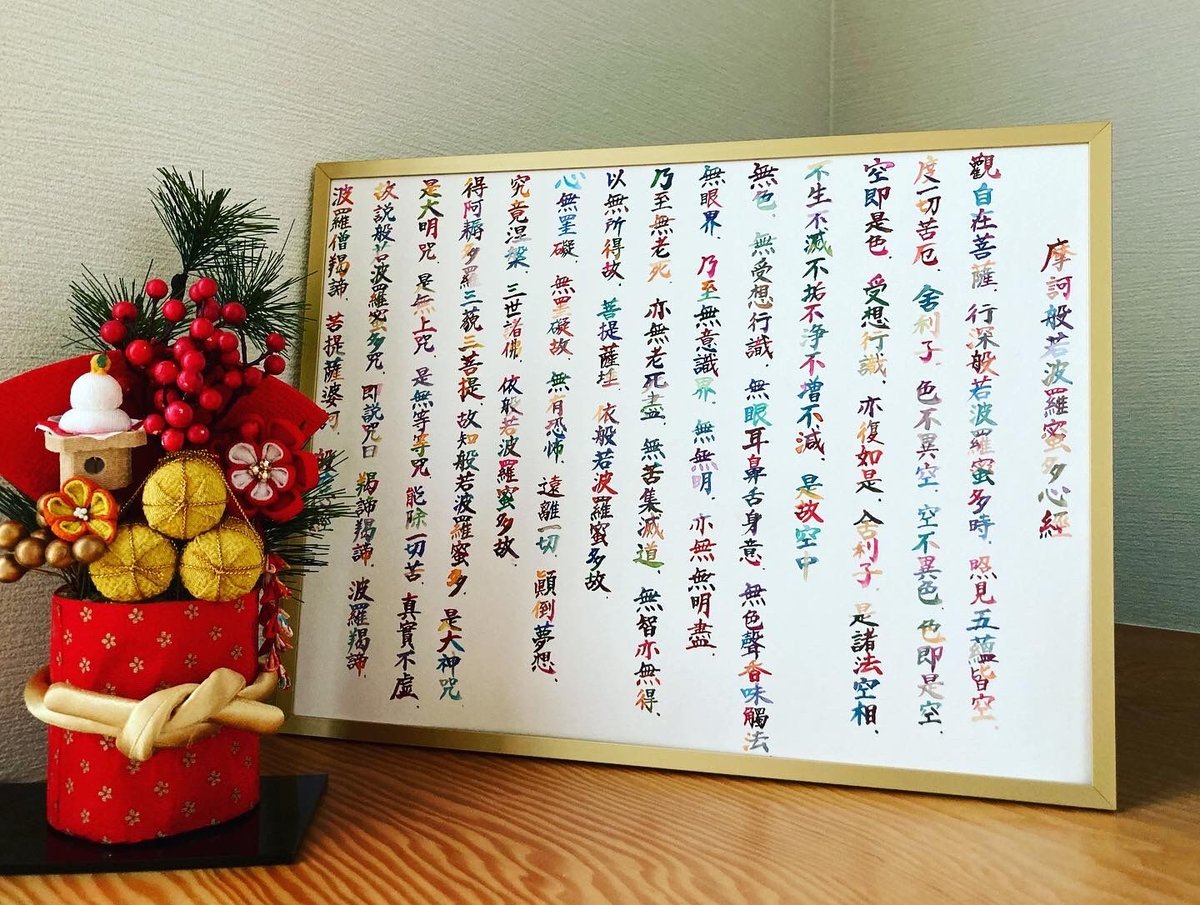 摩訶般若波羅蜜多心經
觀自在菩薩、行深般若波羅蜜多時、照見五蘊皆空、
度一切苦厄、舍利子、色不異空、空不異色、色即是空、
空即是色、受想行識、亦復如是、舍利子、是諸法空相、
不生不滅不垢不浄不增不減、是故空中
無色、無受想行識、無眼耳鼻舌身意、無色聲香味觸法
無眼界、乃至無意識界、無無明、亦無無明盡、
乃至無老死、亦無老死盡、無苦集滅道、無智亦無得、
以無所得故、菩提薩埵、依般若波羅蜜多故
心無罣礙 無罣礙故、無有恐怖、遠離一切、顛倒夢想、
究竟涅槃、三世諸佛、依般若波羅蜜多故、
得阿耨多羅三藐三菩提、故知般若波羅蜜多、是大神咒
是大明咒、是無上咒、是無等等咒、能除一切苦、真實不虛、
故説般若波羅蜜多咒、即説咒曰 羯諦羯諦 波羅羯諦、
波羅僧羯諦、菩提薩婆訶